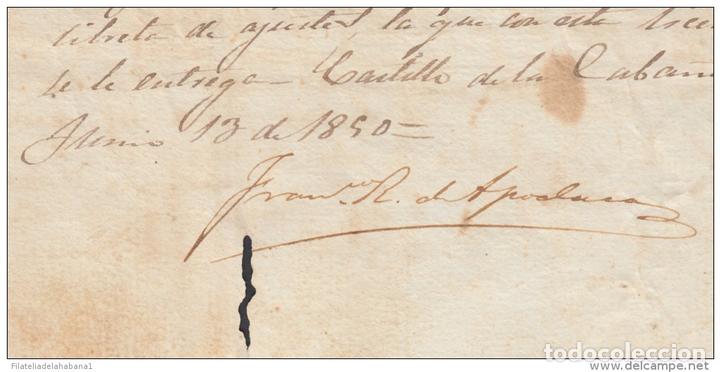 libreta de ajustes, la que con esta licen
se le entrega Castillo de la Cabañ
Junio 13 de 1850=
Fran.co R. de Apodaca
Filateliadelahabana1
todocoleccion.net